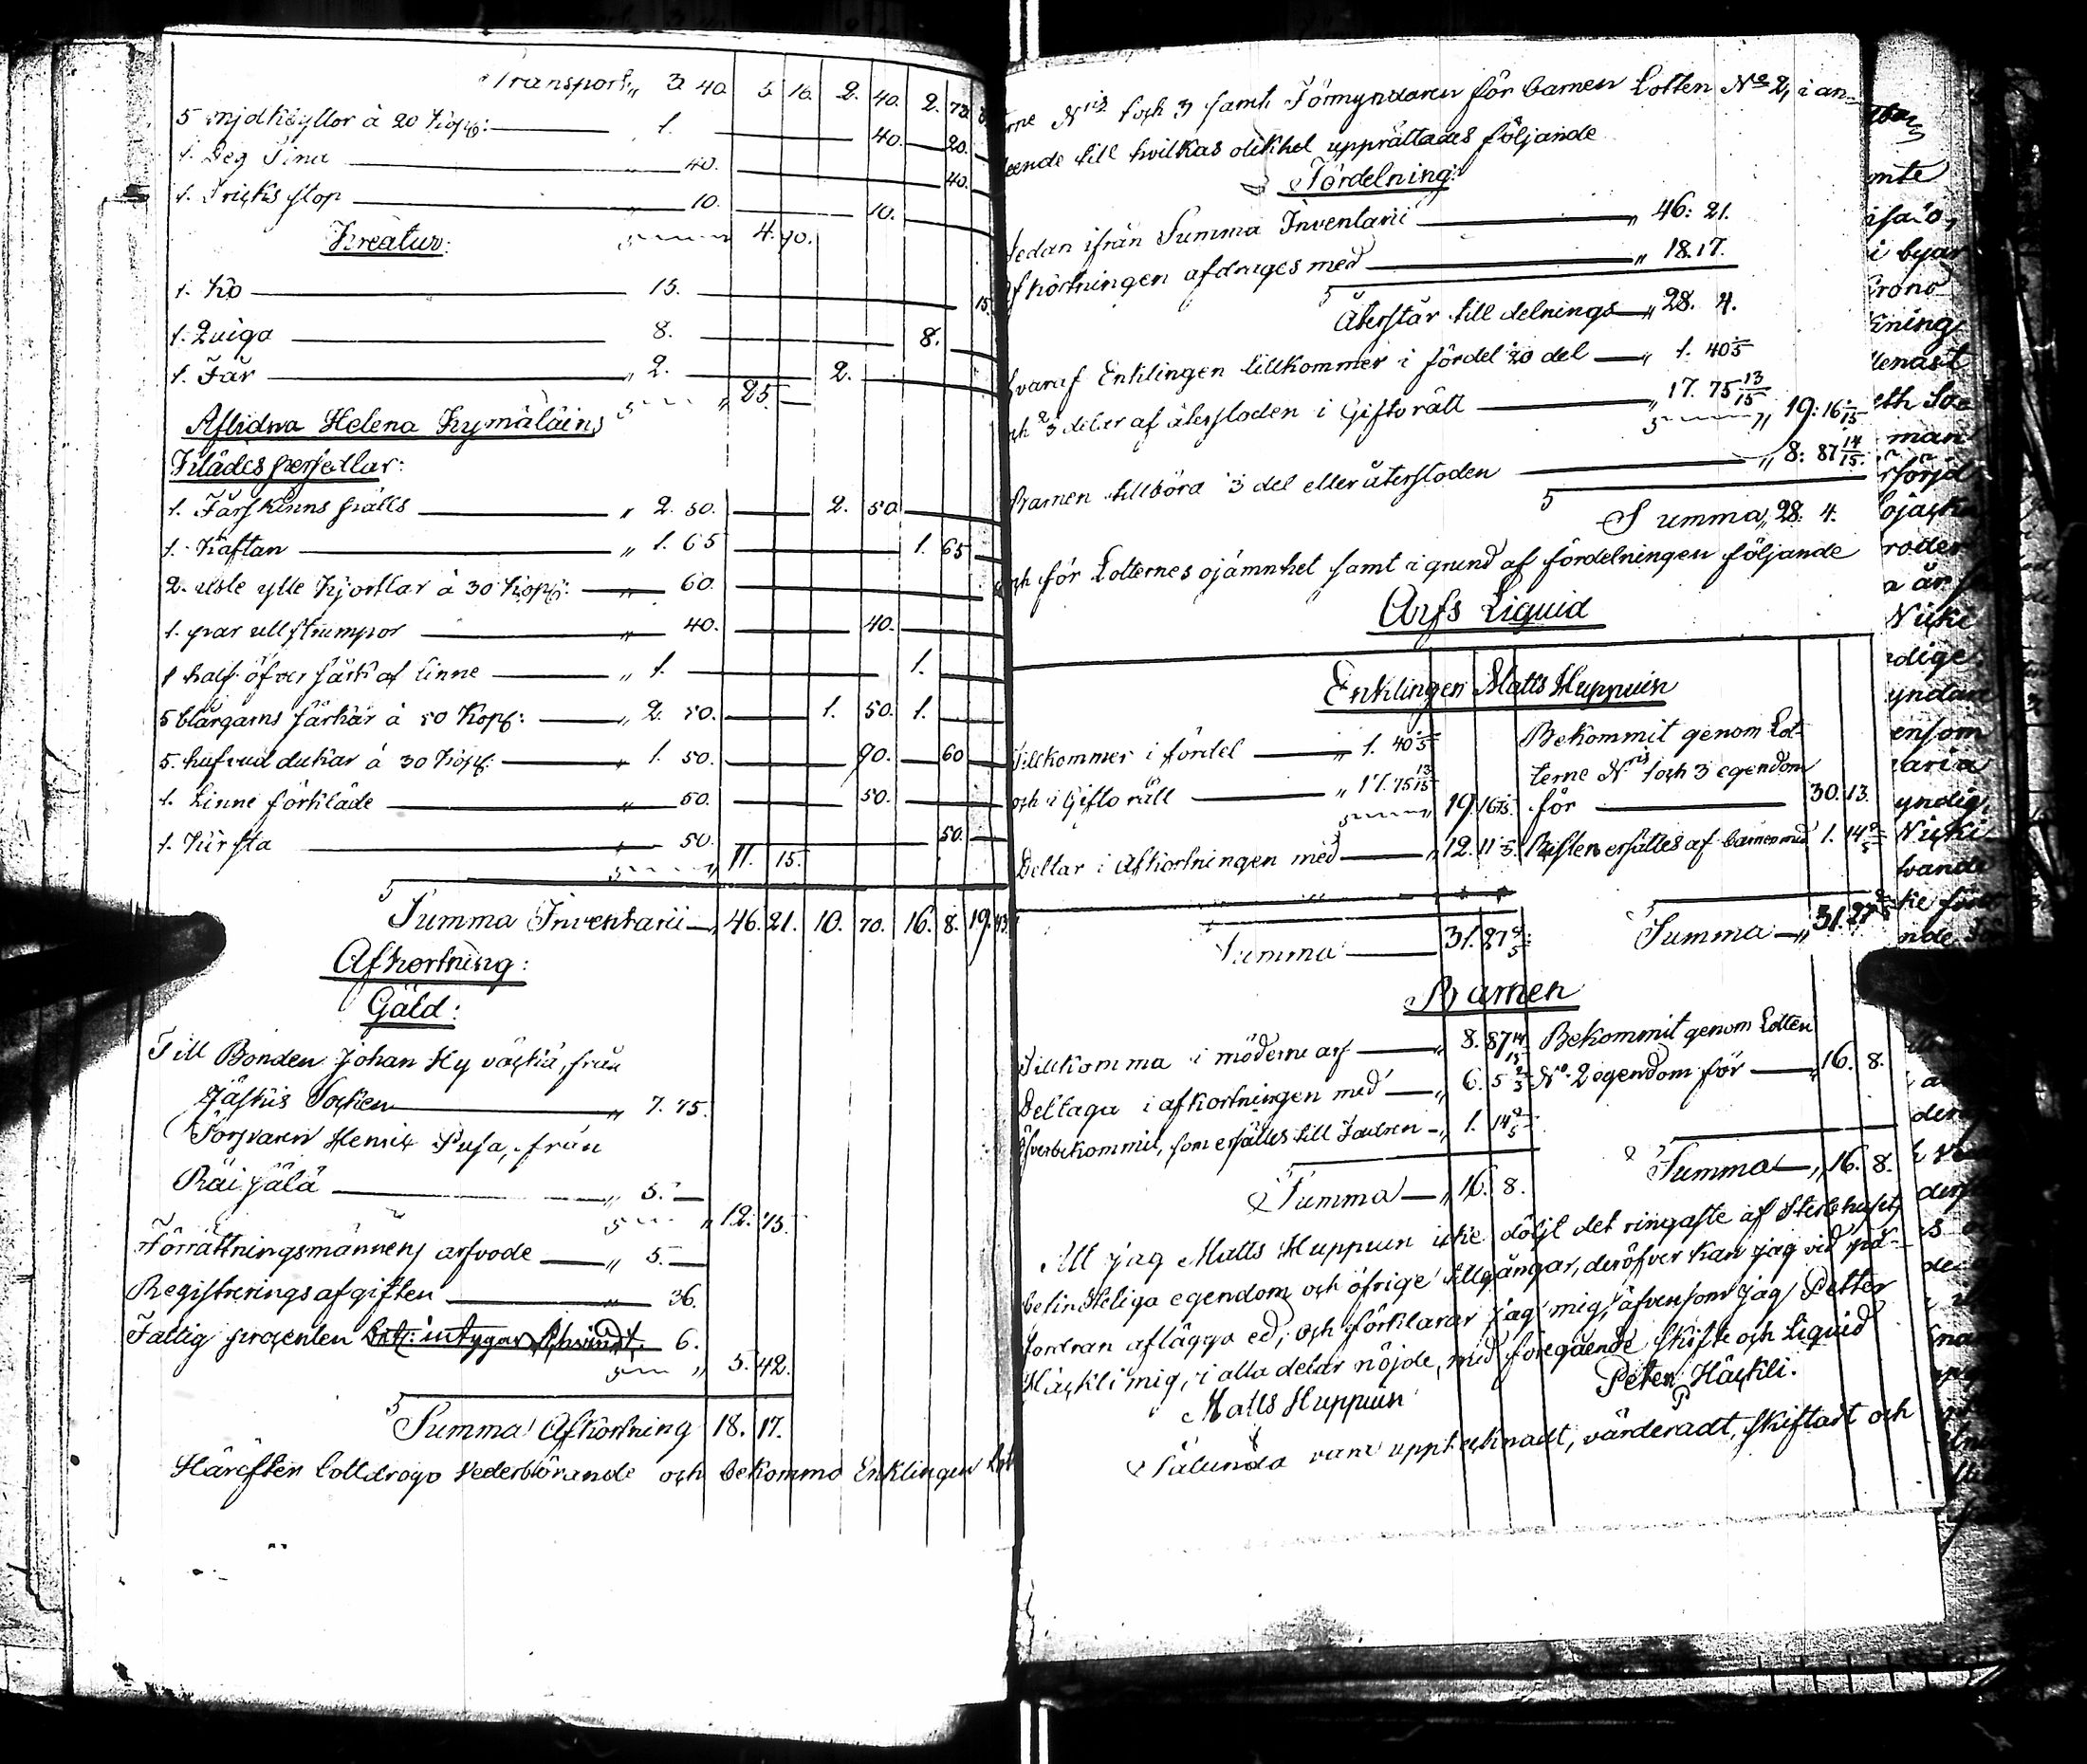 Transport „ 3 40. 5 16. 2. 40. 2. 73
5 mjölkbyttor à 20 Kop: — 1. — 40. — 20.
1. Deg Tina — „ 40. — 40.
1. Tricks stop — 10. — 10.
Kreatur: 4. 90.
1. Ko — 15. — 15
1. Quiga — 8. — 8.
1. Får — „ 2. — 2.
„ 25. —
Aflidna Helena Kymäläins
Klädespersedlar:
1. Fårskinns fälls — „ 2. 50. — 2. 50
1. Kaftan — „ 1. 65 — 1. 65
2. usle ylle Kjortlar à 30 Kop: — „ 60.
1. par ullstrumpor — „ 40. — 40.
1 half öfver särk af Linne — „ 1. — 1.
5 blårgarns särkar à 50 Kop: — „ 2. 50. — 1. 50. 1.
5. hufvud dukar à 30 Kop: — „ 1. 50. — 90. — 60
1. Linne förkläde — „ 50. — 50.
1. — „ 50. — 50.
„ 11. 15.
Summa Inventarii — „ 46. 21. 10. 70. 16. 8. 19. 43.
Afkortning:
Gäld:
Till Bonden Johan Hyväckä, från
Jäskis Socken — „ 7. 75.
Torparen Henric Pusa, från
Räisälä — „ 5. —
„ 12. 75.
Förrättningsmännens arfvode — „ 5. —
Registreringsafgiften — „ 36.
Fattig procenten 6.
„ 5. 42.
Summa Afkortning 18. 17.
Härefter lottdrogo Vederbörande och bekommo Enklingen Lot
erne Nris 1 och 3 samt Förmyndaren för barnen Lotten No 2, i an-
seende till hvilkas olikhet upprättades följande
Fördelning:
Sedan ifrån Summa Inventarii — „ 46: 21.
Afkortningen afdrages med — „ 18. 17.
Återstår till delnings — „ 28. 4.
hvaraf Enklingen tillkommer i fördel 1/20 del — „ 1. 40 1/5
och 2/3 delar af återstoden i Giftorätt — „ 17. 75 13/15
„ 19: 16 1/15
Barnen tillhöra 1/3 del eller återstoden — „ 8: 87 14/15.
Summa „ 28. 4.
och för Lotternes ojämnhet samt i grund af fördelningen följande
Arfs Liquid
Enklingen Matts Huppuin
Tillkommer i fördel — „ 1. 40 1/5
och i Giftorätt — „ 17. 75 13/15
„ 19. 16 1/15.
Deltar i Afkortningen med — „ 12. 11 1/3.
Summa — 31. 27 2/5
Bekommit genom Lot-
terne Nris 1 och 3 egendom
för — 30. 13.
Bristen ersättes af barnen med 1. 14 2/5
Summa — „ 31. 27 2/5
Barnen
Tillkomma i möderne arf — „ 8. 87 14/15
Deltaga i afkortningen med — „ 6. 5 2/3
Öfverbekommit, som ersättes till Fadren — „ 1. 14 2/5
Summa — „ 16. 8.
Bekommit genom Lotten
No. 2 egendom för — „ 16. 8.
Summa — „ 16. 8.
Att jag Matts Huppuin icke döljt det ringaste af Sterbhusets
befinteliga egendom och öfrige tillgångar, deröfver kan jag vid på-
fordran aflägga ed; och förklarar jag mig, äfvensom jag Petter
Häckli mig, i alla delar nöjde, med föregående skifte och Liquid
Matts Huppuin Peter Häckli.
Sålunda vara upptecknadt, värderadt, skiftadt och